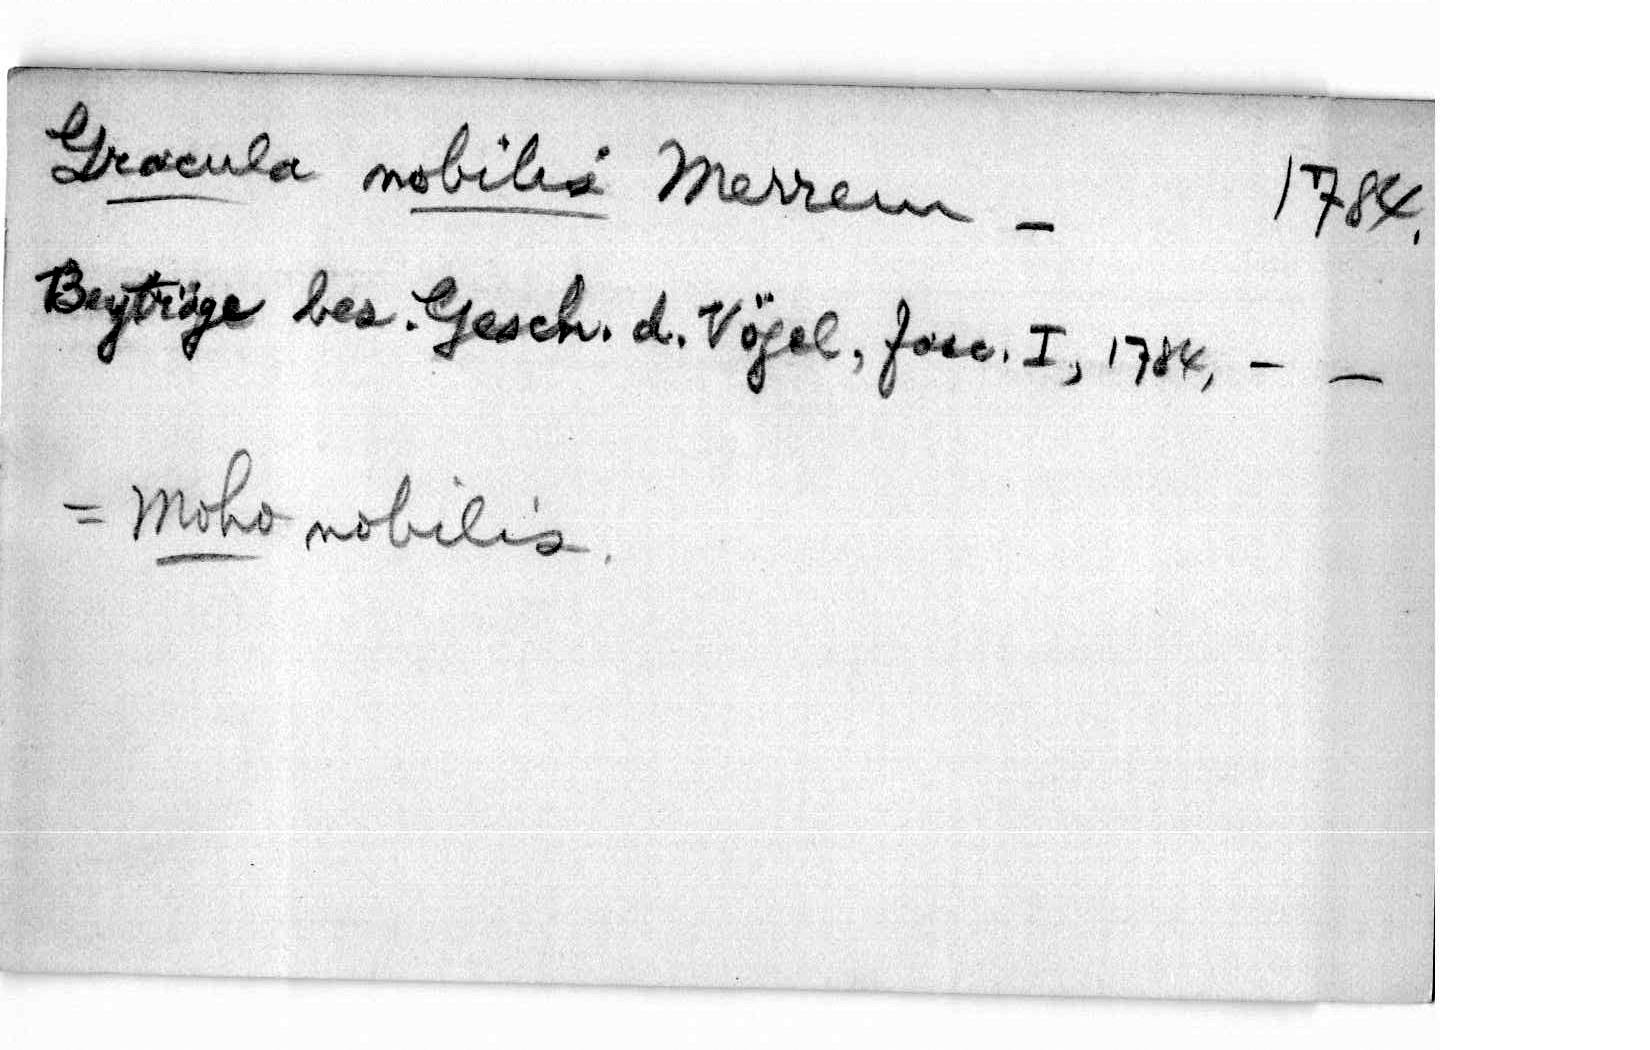 Gracula nobilis Merrem - 1784.
Beyträge bes. Gesch. d. Vögel, fasc. I, 1784, - -
= Moho nobilis.